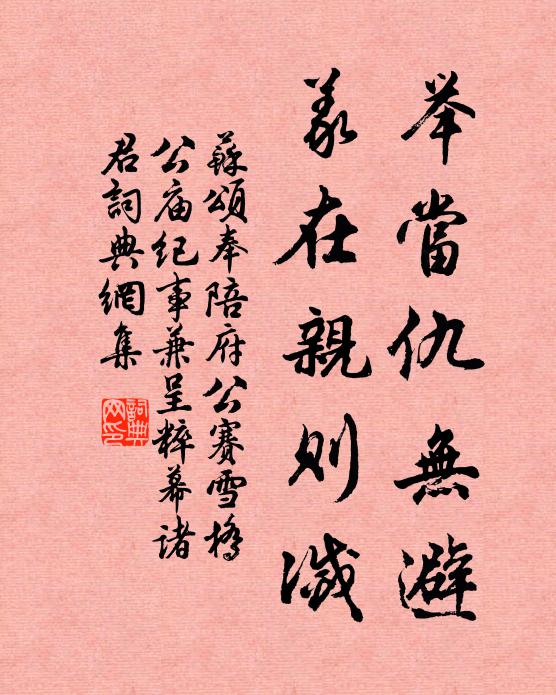 举當仇無避
義在親則滅
蘇頌奉陪府公賽雪橋
公庙纪事兼呈粹幕諸
君詞典網集
詞典网印